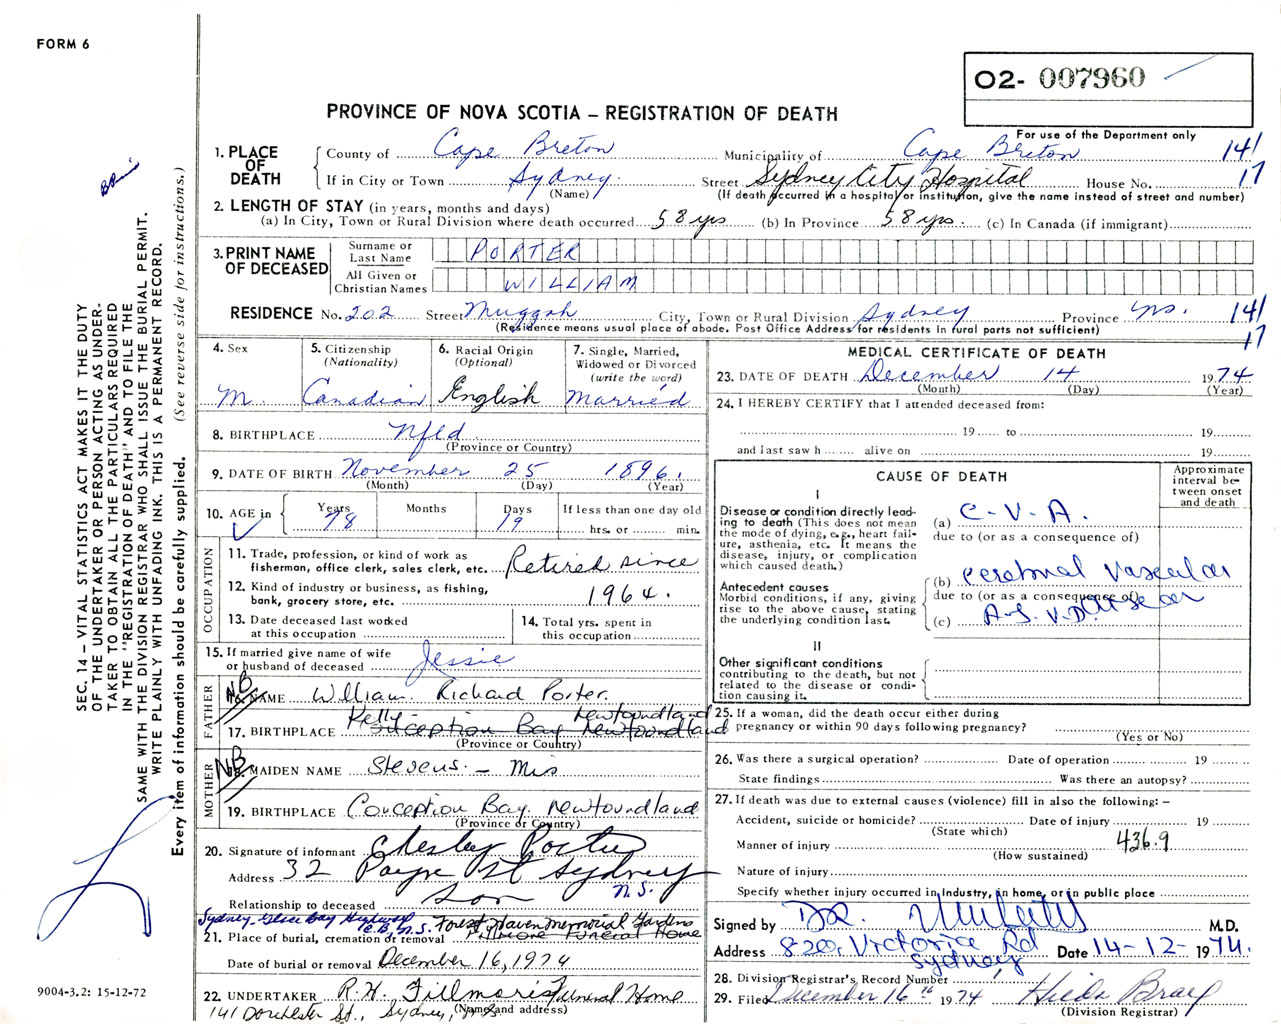 FORM 6
O2- 007960
For use of the Department only
PROVINCE OF NOVA SCOTIA – REGISTRATION OF DEATH
1. PLACE OF DEATH
County of Cape Breton Municipality of Cape Breton 141
If in City or Town Sydney. Street Sydney City Hospital House No. 17
(Name) (If death occurred in a hospital or institution, give the name instead of street and number)
2. LENGTH OF STAY (in years, months and days)
(a) In City, Town or Rural Division where death occurred 58 yrs (b) In Province 58 yrs. (c) In Canada (if immigrant)
3. PRINT NAME OF DECEASED
Surname or Last Name PORTER
All Given or Christian Names WILLIAM
RESIDENCE No. 202 Street Muggah City, Town or Rural Division Sydney Province N.S. 141
(Residence means usual place of abode. Post Office Address for residents in rural parts not sufficient) 17
4. Sex M.
5. Citizenship (Nationality) Canadian
6. Racial Origin (Optional) English
7. Single, Married, Widowed or Divorced (write the word) Married
8. BIRTHPLACE Nfld
(Province or Country)
9. DATE OF BIRTH November 25 1896.
(Month) (Day) (Year)
10. AGE in Years 78 Months Days 19 If less than one day old hrs. or min.
OCCUPATION
11. Trade, profession, or kind of work as fisherman, office clerk, sales clerk, etc. Retired since
12. Kind of industry or business, as fishing, bank, grocery store, etc. 1964.
13. Date deceased last worked at this occupation
14. Total yrs. spent in this occupation
15. If married give name of wife or husband of deceased Jessie
FATHER
NB
16. NAME William Richard Porter.
Kelly Newfoundland
17. BIRTHPLACE Conception Bay Newfoundland
(Province or Country)
MOTHER
NB
18. MAIDEN NAME Stevens. – Mis
19. BIRTHPLACE Conception Bay. Newfoundland
(Province or Country)
20. Signature of informant Chesley Porter
Address 32 Payne St Sydney N.S.
Relationship to deceased son
Sydney Glace Bay Highway C.B., N.S. Forest Haven Memorial Gardens
21. Place of burial, cremation or removal Fillmore Funeral Home
Date of burial or removal December 16, 1974
22. UNDERTAKER R.H. Fillmore's Funeral Home
141 Dorchester St., Sydney, N.S.
(Name and address)
MEDICAL CERTIFICATE OF DEATH
23. DATE OF DEATH December 14 1974
(Month) (Day) (Year)
24. I HEREBY CERTIFY that I attended deceased from:
19 to 19
and last saw h alive on 19
CAUSE OF DEATH
Approximate interval between onset and death
I
Disease or condition directly leading to death (This does not mean the mode of dying, e.g., heart failure, asthenia, etc. It means the disease, injury, or complication which caused death.)
(a) C.V.A.
due to (or as a consequence of)
Antecedent causes
Morbid conditions, if any, giving rise to the above cause, stating the underlying condition last.
(b) Cerebral Vascular
due to (or as a consequence of) Disease
(c) A.S.V.D.
II
Other significant conditions contributing to the death, but not related to the disease or condition causing it.
25. If a woman, did the death occur either during pregnancy or within 90 days following pregnancy?
(Yes or No)
26. Was there a surgical operation? Date of operation 19
State findings Was there an autopsy?
27. If death was due to external causes (violence) fill in also the following: –
Accident, suicide or homicide? Date of injury 19
(State which)
Manner of injury 436.9
(How sustained)
Nature of injury
Specify whether injury occurred in industry, in home, or in public place
Signed by DR. M.D.
Address 820, Victoria Rd Sydney Date 14-12-1974.
28. Division Registrar's Record Number
29. Filed December 16th 1974 Hilda Bray
(Division Registrar)
SEC. 14 – VITAL STATISTICS ACT MAKES IT THE DUTY
OF THE UNDERTAKER OR PERSON ACTING AS UNDER-
TAKER TO OBTAIN ALL THE PARTICULARS REQUIRED
IN THE "REGISTRATION OF DEATH" AND TO FILE THE
SAME WITH THE DIVISION REGISTRAR WHO SHALL ISSUE THE BURIAL PERMIT.
WRITE PLAINLY WITH UNFADING INK. THIS IS A PERMANENT RECORD.
Every item of information should be carefully supplied. (See reverse side for instructions.)
9004-3.2: 15-12-72